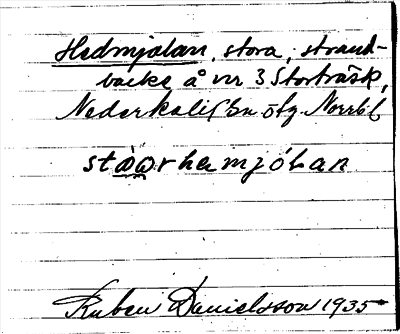 Hedmjalan, stora, strand-
backe å nr 3 Storträsk,
Nederkalix sn ölg. Norrb. l.
stòωrhemjólan
Ruben Danielsson 1935